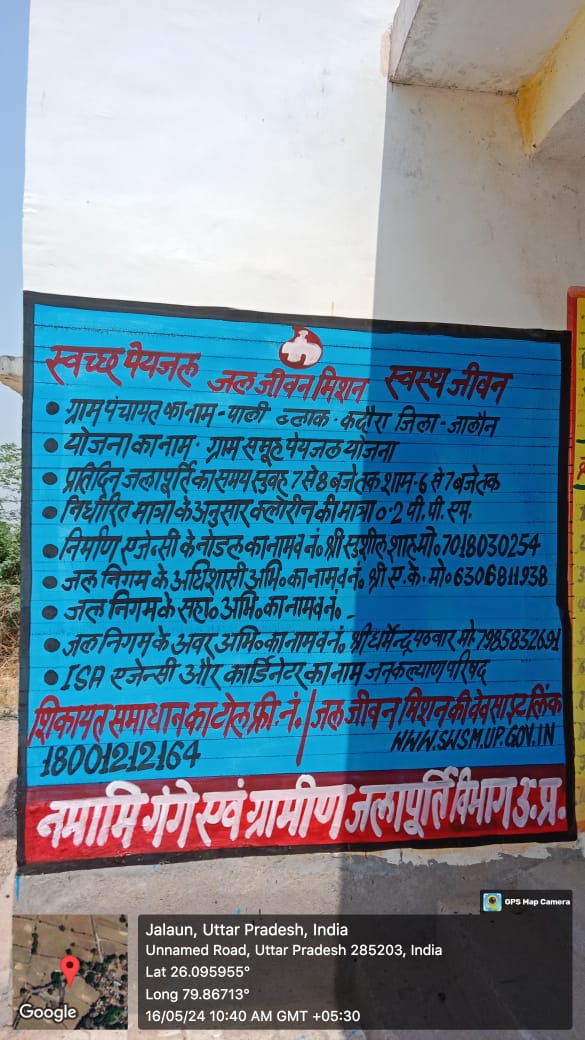 स्वच्छ पेयजल जल जीवन मिशन स्वस्थ जीवन
• ग्राम पंचायत का नाम - पाली ब्लाक - कदौरा जिला - जालौन
• योजना का नाम - ग्राम समूह पेयजल योजना
• प्रतिदिन जलापूर्ति का समय सुवह 7 से 8 बजे तक शाम - 6 से 7 बजे तक
• निर्धारित मात्रा के अनुसार क्लोरीन की मात्रा 0.2 पी. पी. एम.
• निर्माण एजेन्सी के नोडल का नाम व नं. श्री सुशील शाह मो. 7018030254
• जल निगम के अधिशासी अभि. का नाम व नं. श्री ए. के. मो. 6306811938
• जल निगम के सहा. अभि. का नाम व नं.
• जल निगम के अवर अभि. का नाम व नं. श्री धर्मेन्द्र पठवार मो. 7985832691
• ISA एजेन्सी और कार्डिनेटर का नाम जनकल्याण परिषद
शिकायत समाधान का टोल फ्री. नं. / जल जीवन मिशन की वेबसाइट लिंक
18001212164 WWW.SWSM.UP.GOV.IN
नमामि गंगे एवं ग्रामीण जलापूर्ति विभाग उ. प्र.
GPS Map Camera
Jalaun, Uttar Pradesh, India
Unnamed Road, Uttar Pradesh 285203, India
Lat 26.095955°
Long 79.86713°
16/05/24 10:40 AM GMT +05:30
Google